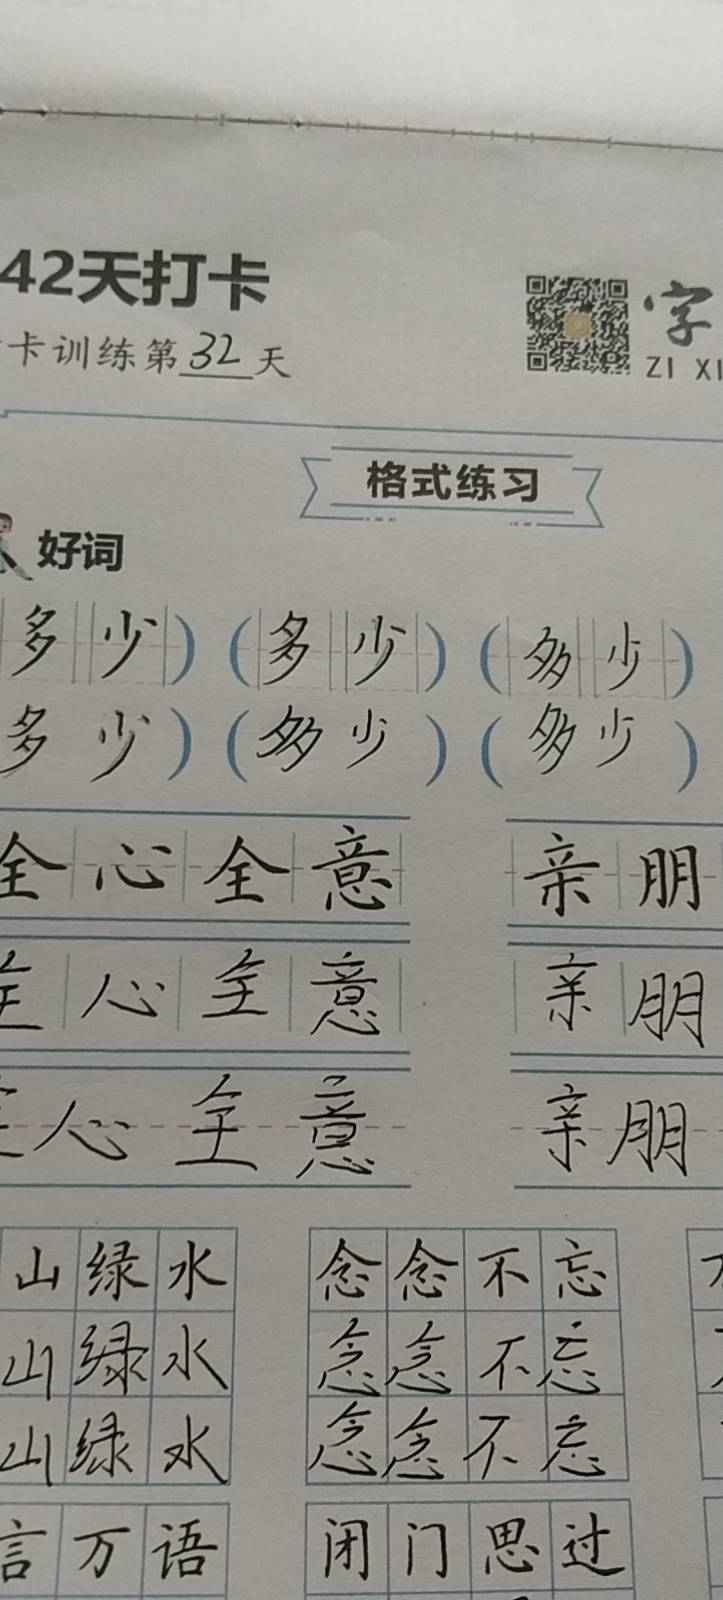 42天打卡
卡训练第32天
字
ZI XI
格式练习
好词
多少）（多少）（多少）
多少）（多少）（多少）
全心全意 亲朋
全心全意 亲朋
全心全意 亲朋
山绿水 念念不忘
山绿水 念念不忘
山绿水 念念不忘
言万语 闭门思过